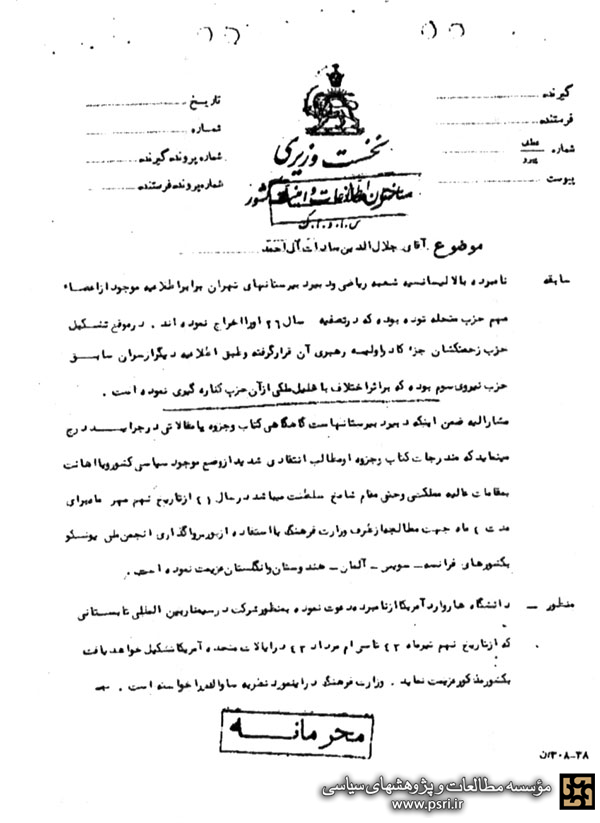 گیرنده
فرستنده
شماره عطف پیرو
پیوست
تاریخ
شماره
شماره پرونده گیرنده
شماره پرونده فرستنده
نخست وزیری
سازمان اطلاعات و امنیت کشور
س.ا.و.ا.ک
موضوع آقای جلال الدین سادات آل احمد
سابقه نامبرده بالا لیسانسیه شعبه ریاضی و دبیر دبیرستانهای تهران برابر اطلاعیه موجود از اعضاء
مهم حزب منحله توده بوده که در تصفیه سال ۲۶ او را اخراج نموده اند . در موقع تشکیل
حزب زحمتکشان جزء کادر اولیه رهبری آن قرار گرفته و طبق اعلامیه دیگر از سران سابق
حزب نیروی سوم بوده که بر اثر اختلاف با خلیل ملکی از آن حزب کناره گیری نموده است .
مشارالیه ضمن اینکه دبیر دبیرستانهاست گاهگاهی کتاب و جزوه یا مقالاتی در جراید درج
مینماید که مندرجات کتاب و جزوه او مطالب انتقادی شدید از وضع موجود سیاسی کشور و یا اهانت
بمقامات عالیه مملکتی و حتی مقام شامخ سلطنت میباشد در سال ۴۱ از تاریخ نهم مهر ماه برای
مدت ۴ ماه جهت مطالعه از طرف وزارت فرهنگ با استفاده از بورس واگذاری انجمن ملی یونسکو
بکشورهای فرانسه - سویس - آلمان - هندوستان و انگلستان عزیمت نموده است .
منظور - دانشگاه هاروارد آمریکا از نامبرده دعوت نموده بمنظور شرکت در سمینار بین المللی تابستانی
که از تاریخ نهم تیرماه ۴۳ تا سی ام مرداد ۴۳ در ایالات متحده آمریکا تشکیل خواهد یافت
بکشور مذکور عزیمت نماید . وزارت فرهنگ در اینمورد نظریه ساواک را خواسته است .
محرمانه
۳۰۸-۳۸/ن
مؤسسه مطالعات و پژوهشهای سیاسی
www.psri.ir